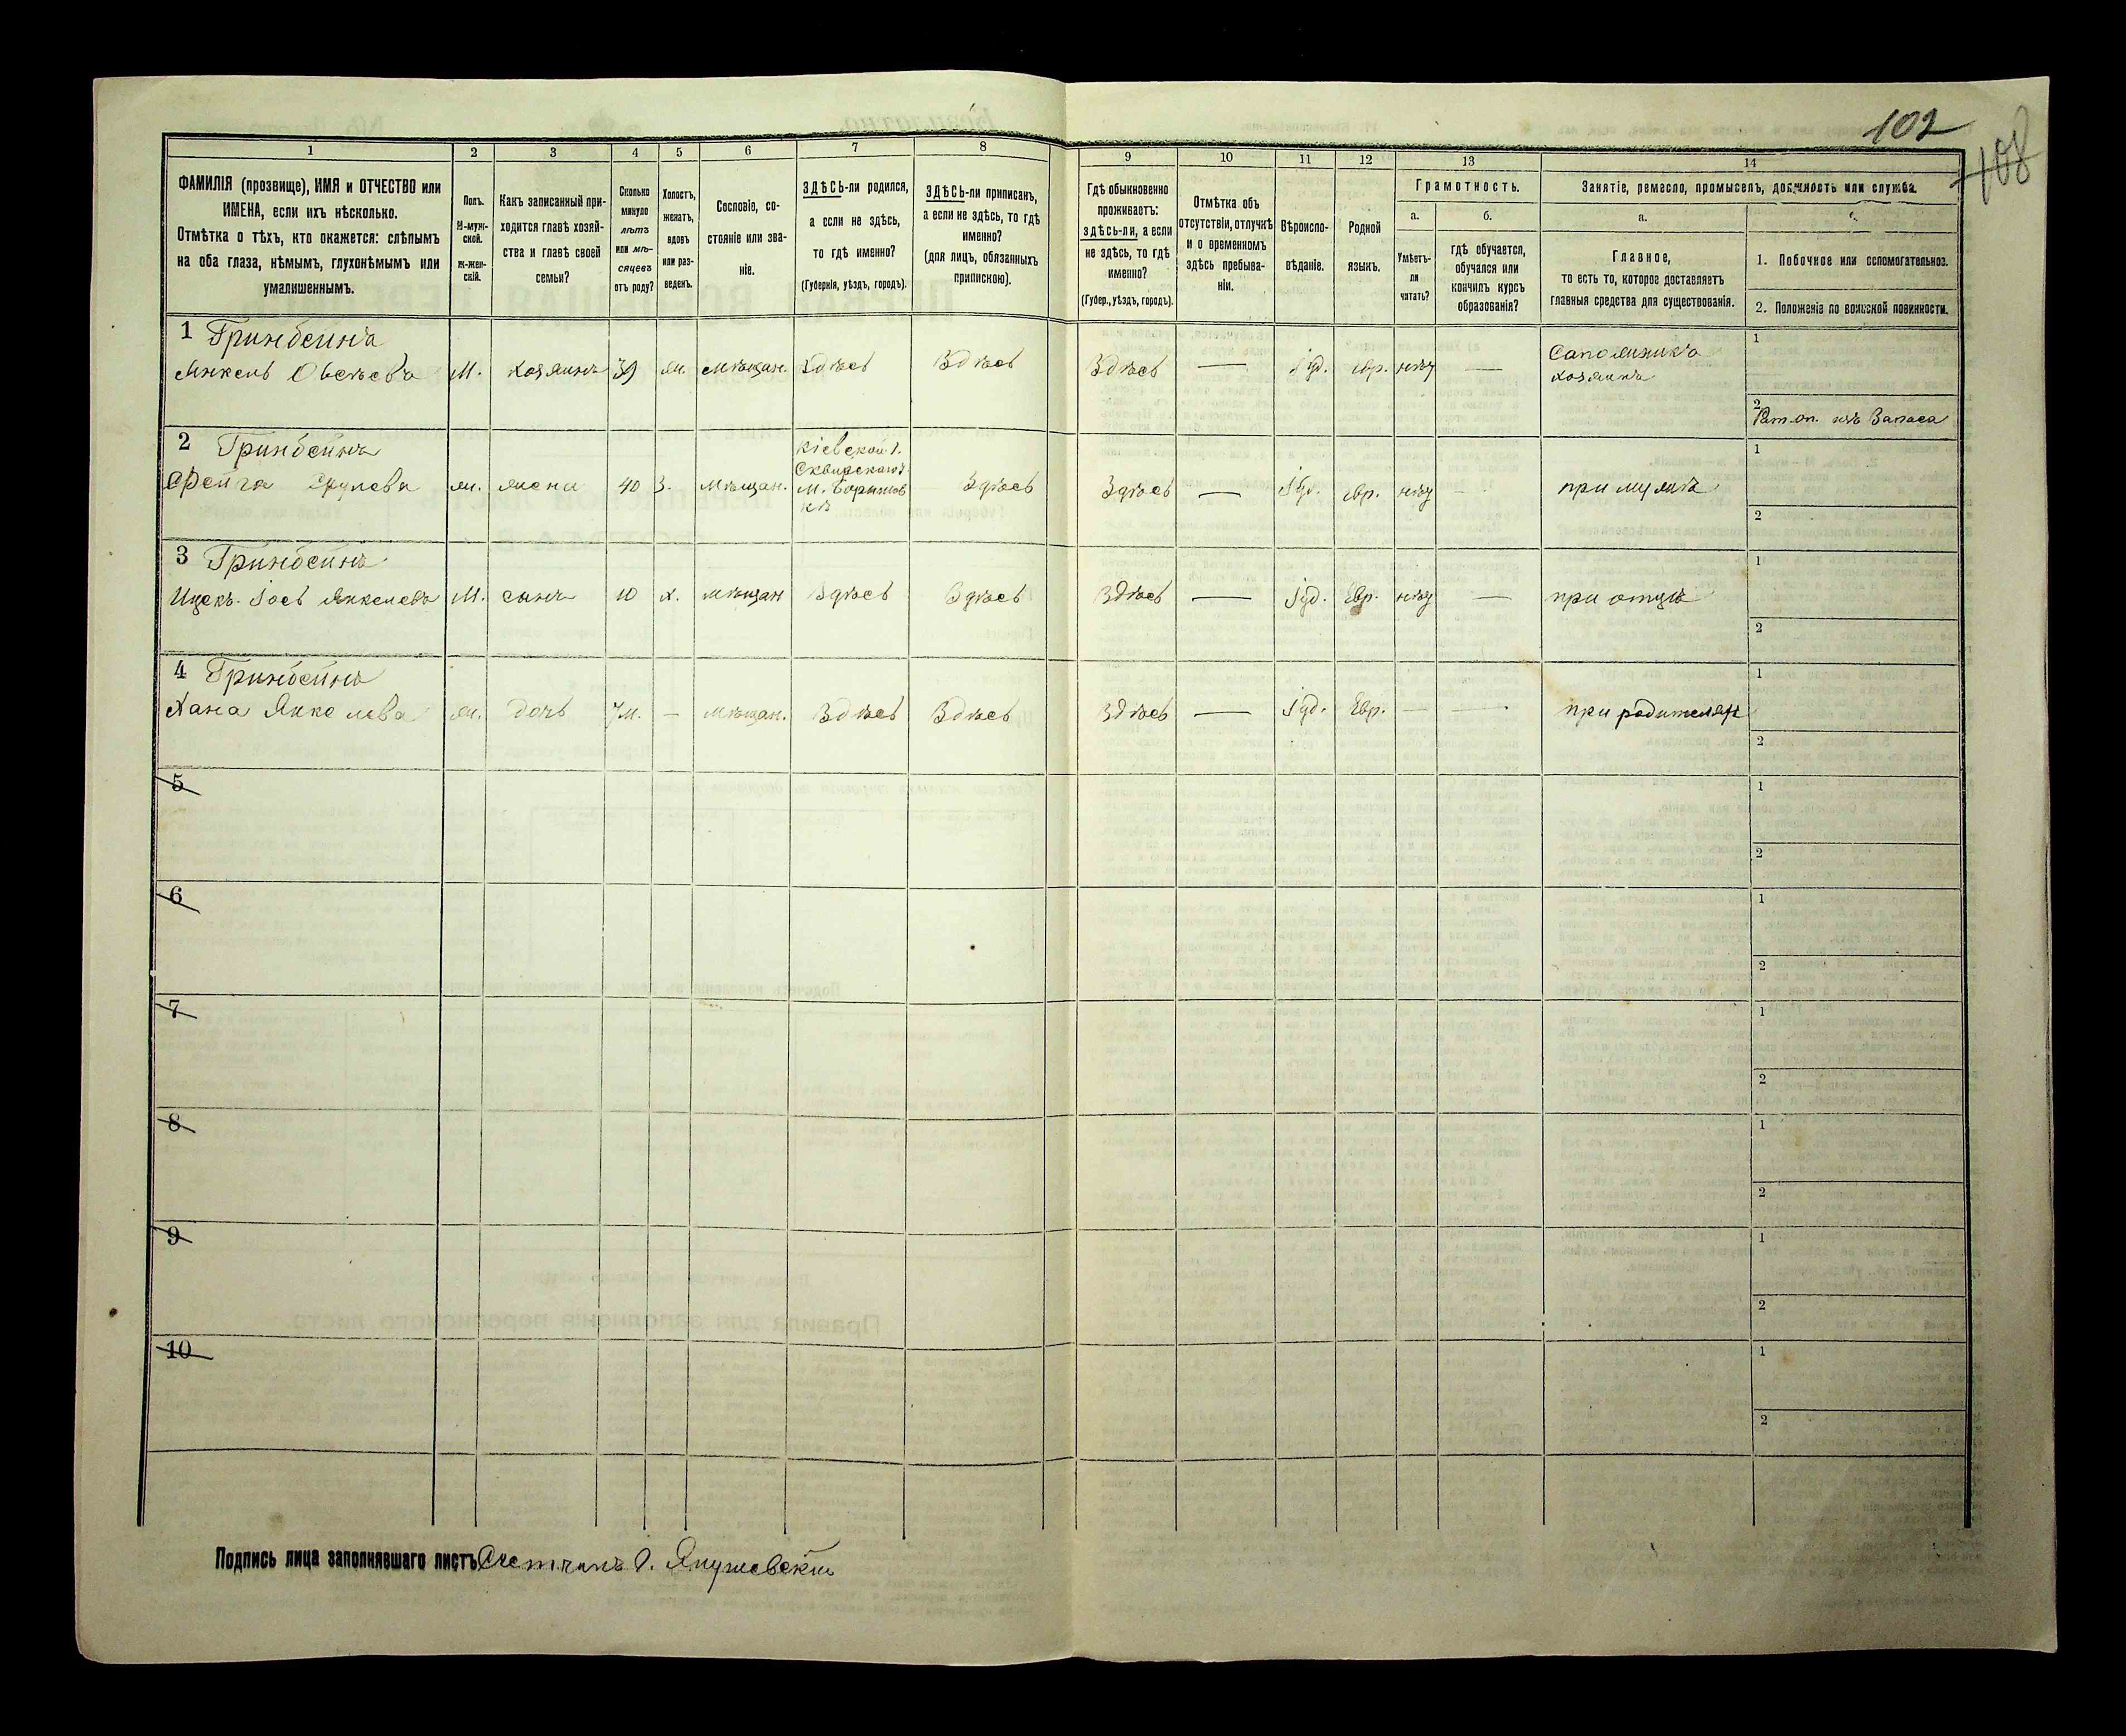 102
108
1
2
3
4
5
6
7
8
9
10
11
12
13
14
ФАМИЛІЯ (прозвище), ИМЯ и ОТЧЕСТВО или
ИМЕНА, если ихъ нѣсколько.
Отмѣтка о тѣхъ, кто окажется: слѣпымъ
на оба глаза, нѣмымъ, глухонѣмымъ или
умалишеннымъ.
Полъ.
М-муж-
ской.
ж-жен-
скій.
Какъ записанный при-
ходится главѣ хозяй-
ства и главѣ своей
семьи?
Сколько
минуло
лѣтъ
или мѣ-
сяцевъ
отъ роду?
Холостъ,
женатъ,
вдовъ
или раз-
веденъ.
Сословіе, со-
стояніе или зва-
ніе.
ЗДѢСЬ-ли родился,
а если не здѣсь,
то гдѣ именно?
(Губернія, уѣздъ, городъ).
ЗДѢСЬ-ли приписанъ,
а если не здѣсь, то гдѣ
именно?
(для лицъ, обязанныхъ
припискою).
Гдѣ обыкновенно
проживаетъ:
здѣсь-ли, а если
не здѣсь, то гдѣ
именно?
(Губер., уѣздъ, городъ).
Отмѣтка объ
отсутствіи, отлучкѣ
и о временномъ
здѣсь пребыва-
ніи.
Вѣроиспо-
вѣданіе.
Родной
языкъ.
Грамотность.
а.
б.
Умѣетъ-
ли
читать?
гдѣ обучается,
обучался или
кончилъ курсъ
образованія?
Занятіе, ремесло, промыселъ, должность или служба.
а.
Главное,
то есть то, которое доставляетъ
главныя средства для существованія.
1. Побочное или вспомогательноз.
2. Положеніе по воинской повинности.
1 Гринбейнъ
Янкель Овсѣевъ М. хозяинъ 39 ж. мѣщан. Здѣсь Здѣсь Здѣсь — Іуд. евр. нѣту — Сапожникъ
хозяинъ
1
2
Рат. оп. изъ Запаса
2 Гринбейнъ
Фейга Срулева ж. жена 40 З. мѣщан. Кіевской г.
Сквирского у.
М. Борщов
кѣ
Здѣсь Здѣсь — Іуд. евр. нѣту при мужѣ
1
2
3 Гринбейнъ
Ицекъ-Іось Янкелевъ М. сынъ 10 х. мѣщан Здѣсь Здѣсь Здѣсь — Іуд. Евр. нѣту — при отцѣ
1
2
4 Гринбейнъ
Хана Янкелева ж. дочь 7 м. — мѣщан. Здѣсь Здѣсь Здѣсь — Іуд. Евр. — — при родителях
1
2
5
1
2
6
1
2
7
1
2
8
1
2
9
1
2
10
1
2
Подпись лица заполнявшаго листъ Счетчикъ